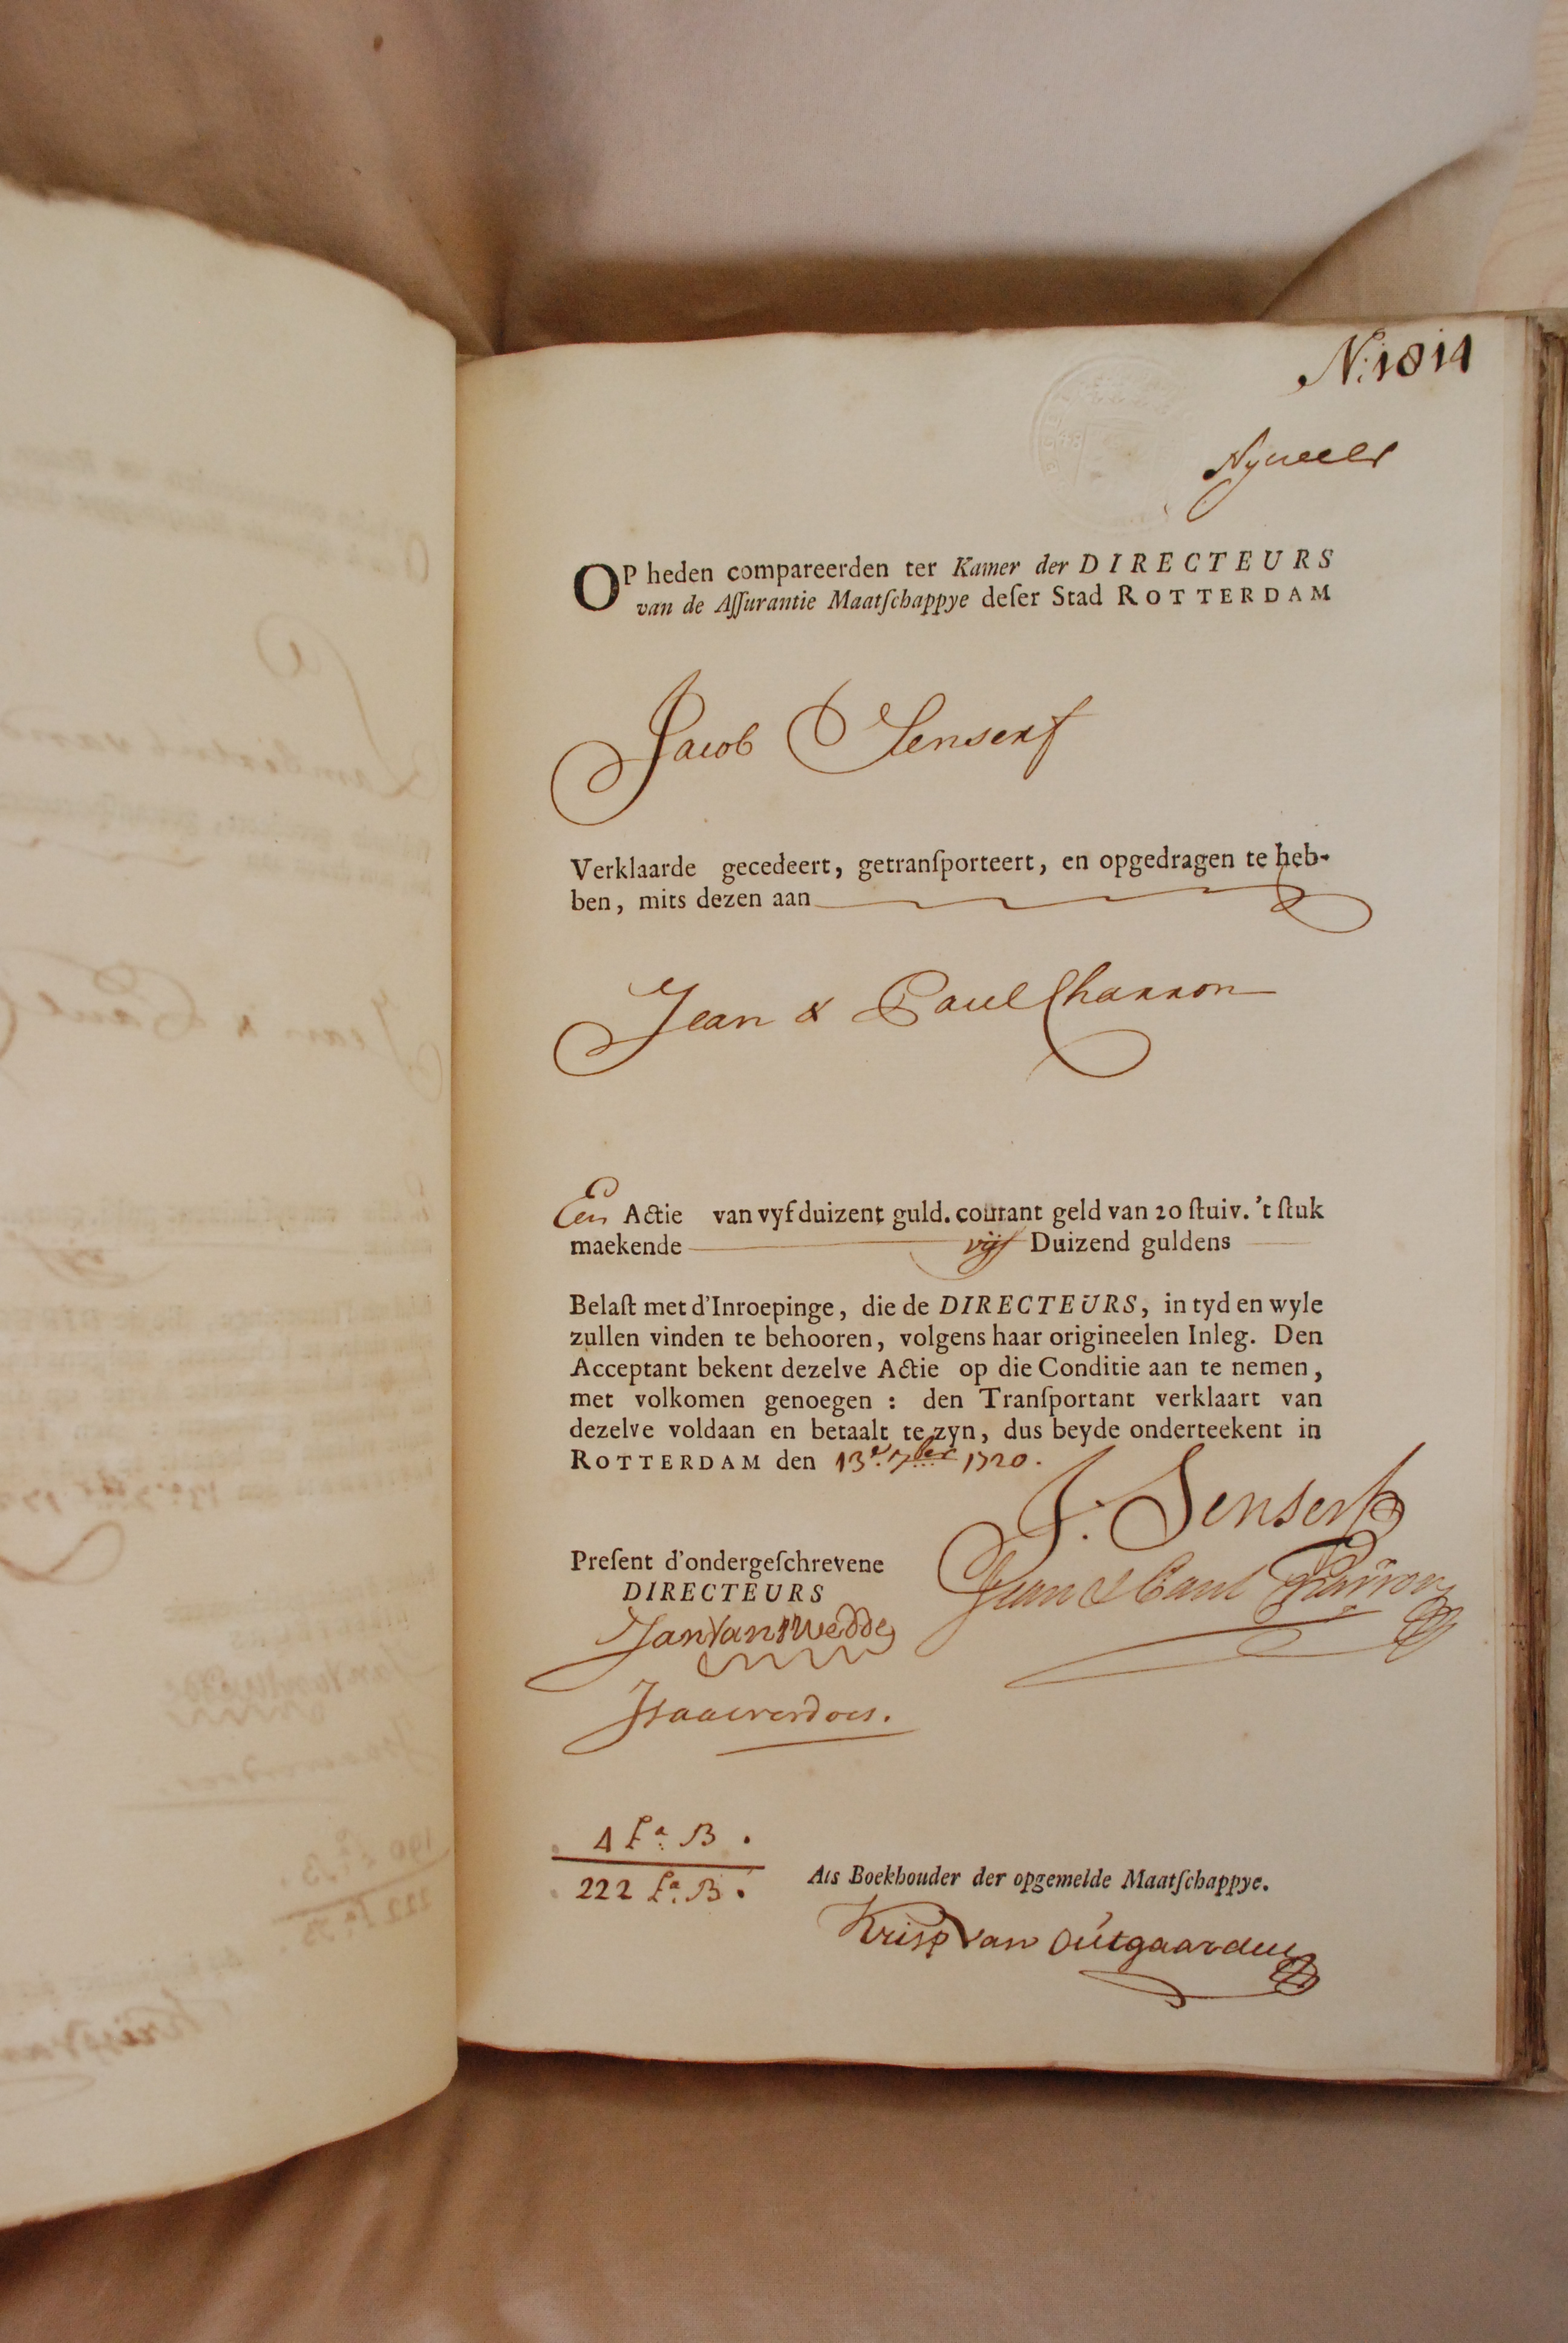 N: 1814
OP heden compareerden ter Kamer der DIRECTEURS
van de Aſſurantie Maatſchappye deſer Stad ROTTERDAM
Jacob Senserf
Verklaarde gecedeert, getranſporteert, en opgedragen te heb-
ben, mits dezen aan
Jean & Paul Charron
Een Actie van vyf duizent guld. courant geld van 20 ſtuiv. 't ſtuk
maekende vijf Duizend guldens
Belaſt met d'Inroepinge, die de DIRECTEURS, in tyd en wyle
zullen vinden te behooren, volgens haar origineelen Inleg. Den
Acceptant bekent dezelve Actie op die Conditie aan te nemen,
met volkomen genoegen : den Tranſportant verklaart van
dezelve voldaan en betaalt te zyn, dus beyde onderteekent in
ROTTERDAM den 13e. 7ber 1720.
J. Senserf
Jean & Paul Charron
Preſent d'ondergeſchrevene
DIRECTEURS
Jan Van twedde
Isaac verdoes.
4 Fa. B.
222 Fa. B.
Als Boekhouder der opgemelde Maatſchappye.
Krisp Van outgaarden